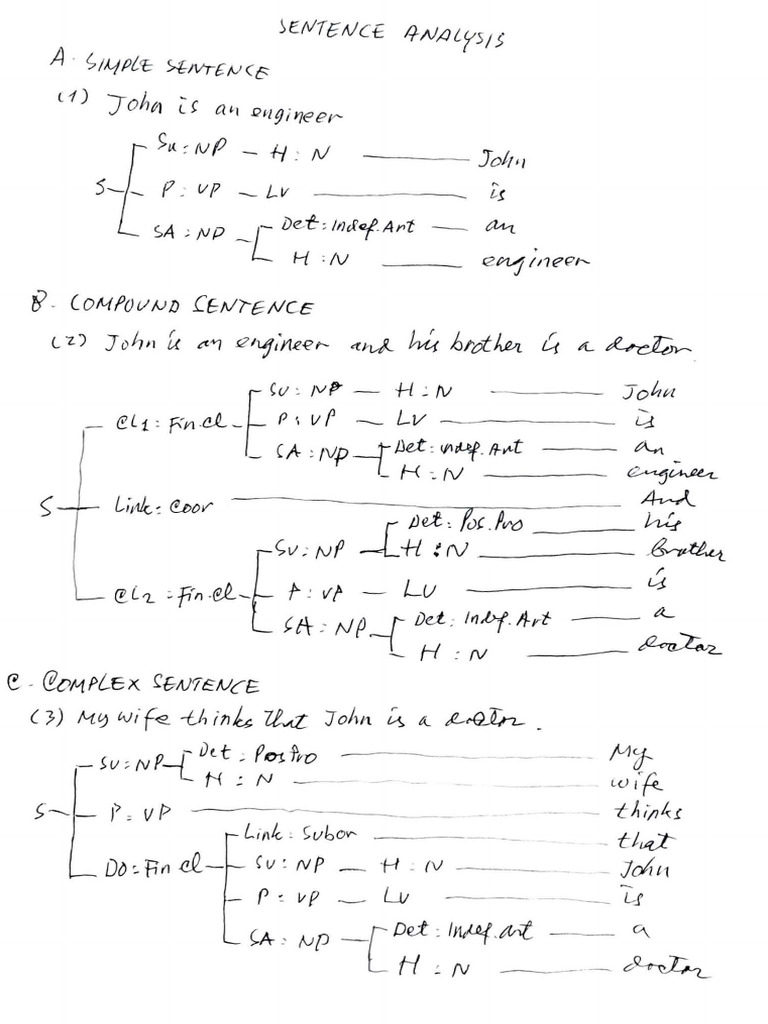 SENTENCE ANALYSIS
A. SIMPLE SENTENCE
(1) John is an engineer
Su : NP — H : N — John
S — P : VP — LV — is
SA : NP — Det : Indef. Art — an
H : N — engineer
B. COMPOUND SENTENCE
(2) John is an engineer and his brother is a doctor.
SU : NP — H : N — John
CL1 : Fin.cl — P : VP — LV — is
SA : NP — Det : indef. Art — an
H : N — engineer
S — Link : coor — And
SU : NP — Det : Pos. Pro — his
H : N — brother
CL2 : Fin.cl — P : VP — LV — is
SA : NP — Det : Indef. Art — a
H : N — doctor
C. COMPLEX SENTENCE
(3) My wife thinks that John is a doctor.
SU : NP — Det : Pos Pro — My
H : N — wife
S — P : VP — thinks
Link : Subor — that
DO : Fin cl — SU : NP — H : N — John
P : VP — LV — is
SA : NP — Det : Indef. art — a
H : N — doctor